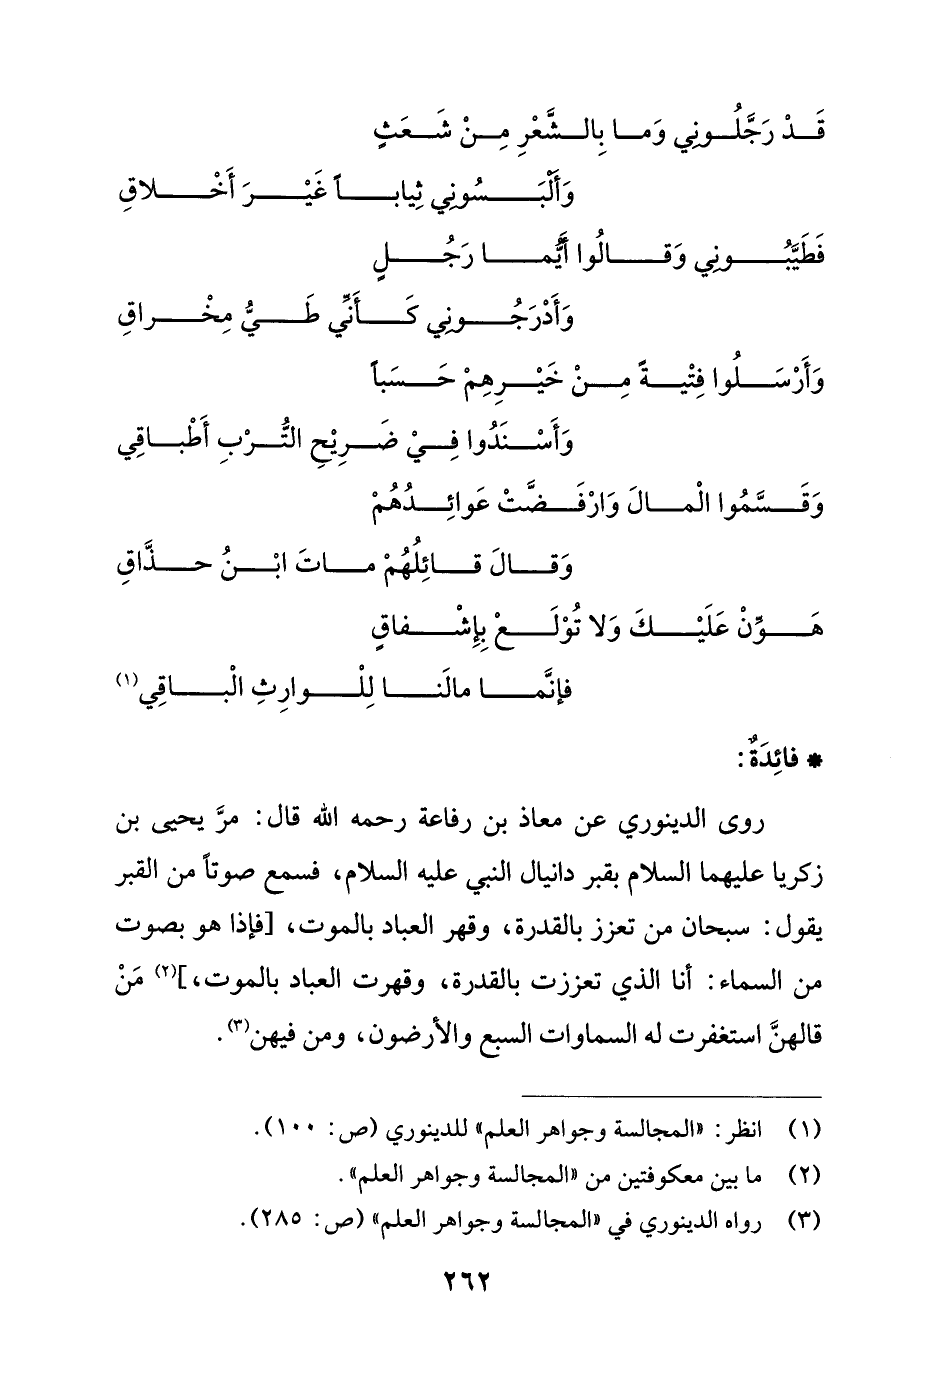 قَدْ رَجَّلُونِي وَما بِالشَّعْرِ مِنْ شَعَثٍ
وَأَلْبَسُونِي ثِيَاباً غَيْرَ أَخْلاقِ
فَطَيَّبُونِي وَقالُوا أَيُّما رَجُلٍ
وَأَدْرَجُونِي كَأَنِّي طَيُّ مِخْراقِ
وَأَرْسَلُوا فِتْيةً مِنْ خَيْرِهِمْ حَسَباً
وَأَسْنَدُوا فِيْ ضَرِيْحِ التُّرْبِ أَطْباقِي
وَقَسَّمُوا الْمالَ وَارْفَضَّتْ عَوائِدُهُمْ
وَقالَ قائِلُهُمْ ماتَ ابْنُ حذَّاقِ
هَوِّنْ عَلَيْكَ وَلا تُوْلَعْ بِإِشْفاقٍ
فإنَّما مالَنا لِلْوارِثِ الْباقِي(١)
* فائِدَةٌ:
روى الدينوري عن معاذ بن رفاعة رحمه الله قال: مرَّ يحيى بن
زكريا عليهما السلام بقبر دانيال النبي عليه السلام، فسمع صوتاً من القبر
يقول: سبحان من تعزز بالقدرة، وقهر العباد بالموت، [فإذا هو بصوت
من السماء: أنا الذي تعززت بالقدرة، وقهرت العباد بالموت،](٢) مَنْ
قالهنَّ استغفرت له السماوات السبع والأرضون، ومن فيهن(٣).
(١) انظر: «المجالسة وجواهر العلم» للدينوري (ص: ١٠٠).
(٢) ما بين معكوفتين من «المجالسة وجواهر العلم».
(٣) رواه الدينوري في «المجالسة وجواهر العلم» (ص: ٢٨٥).
٢٦٢